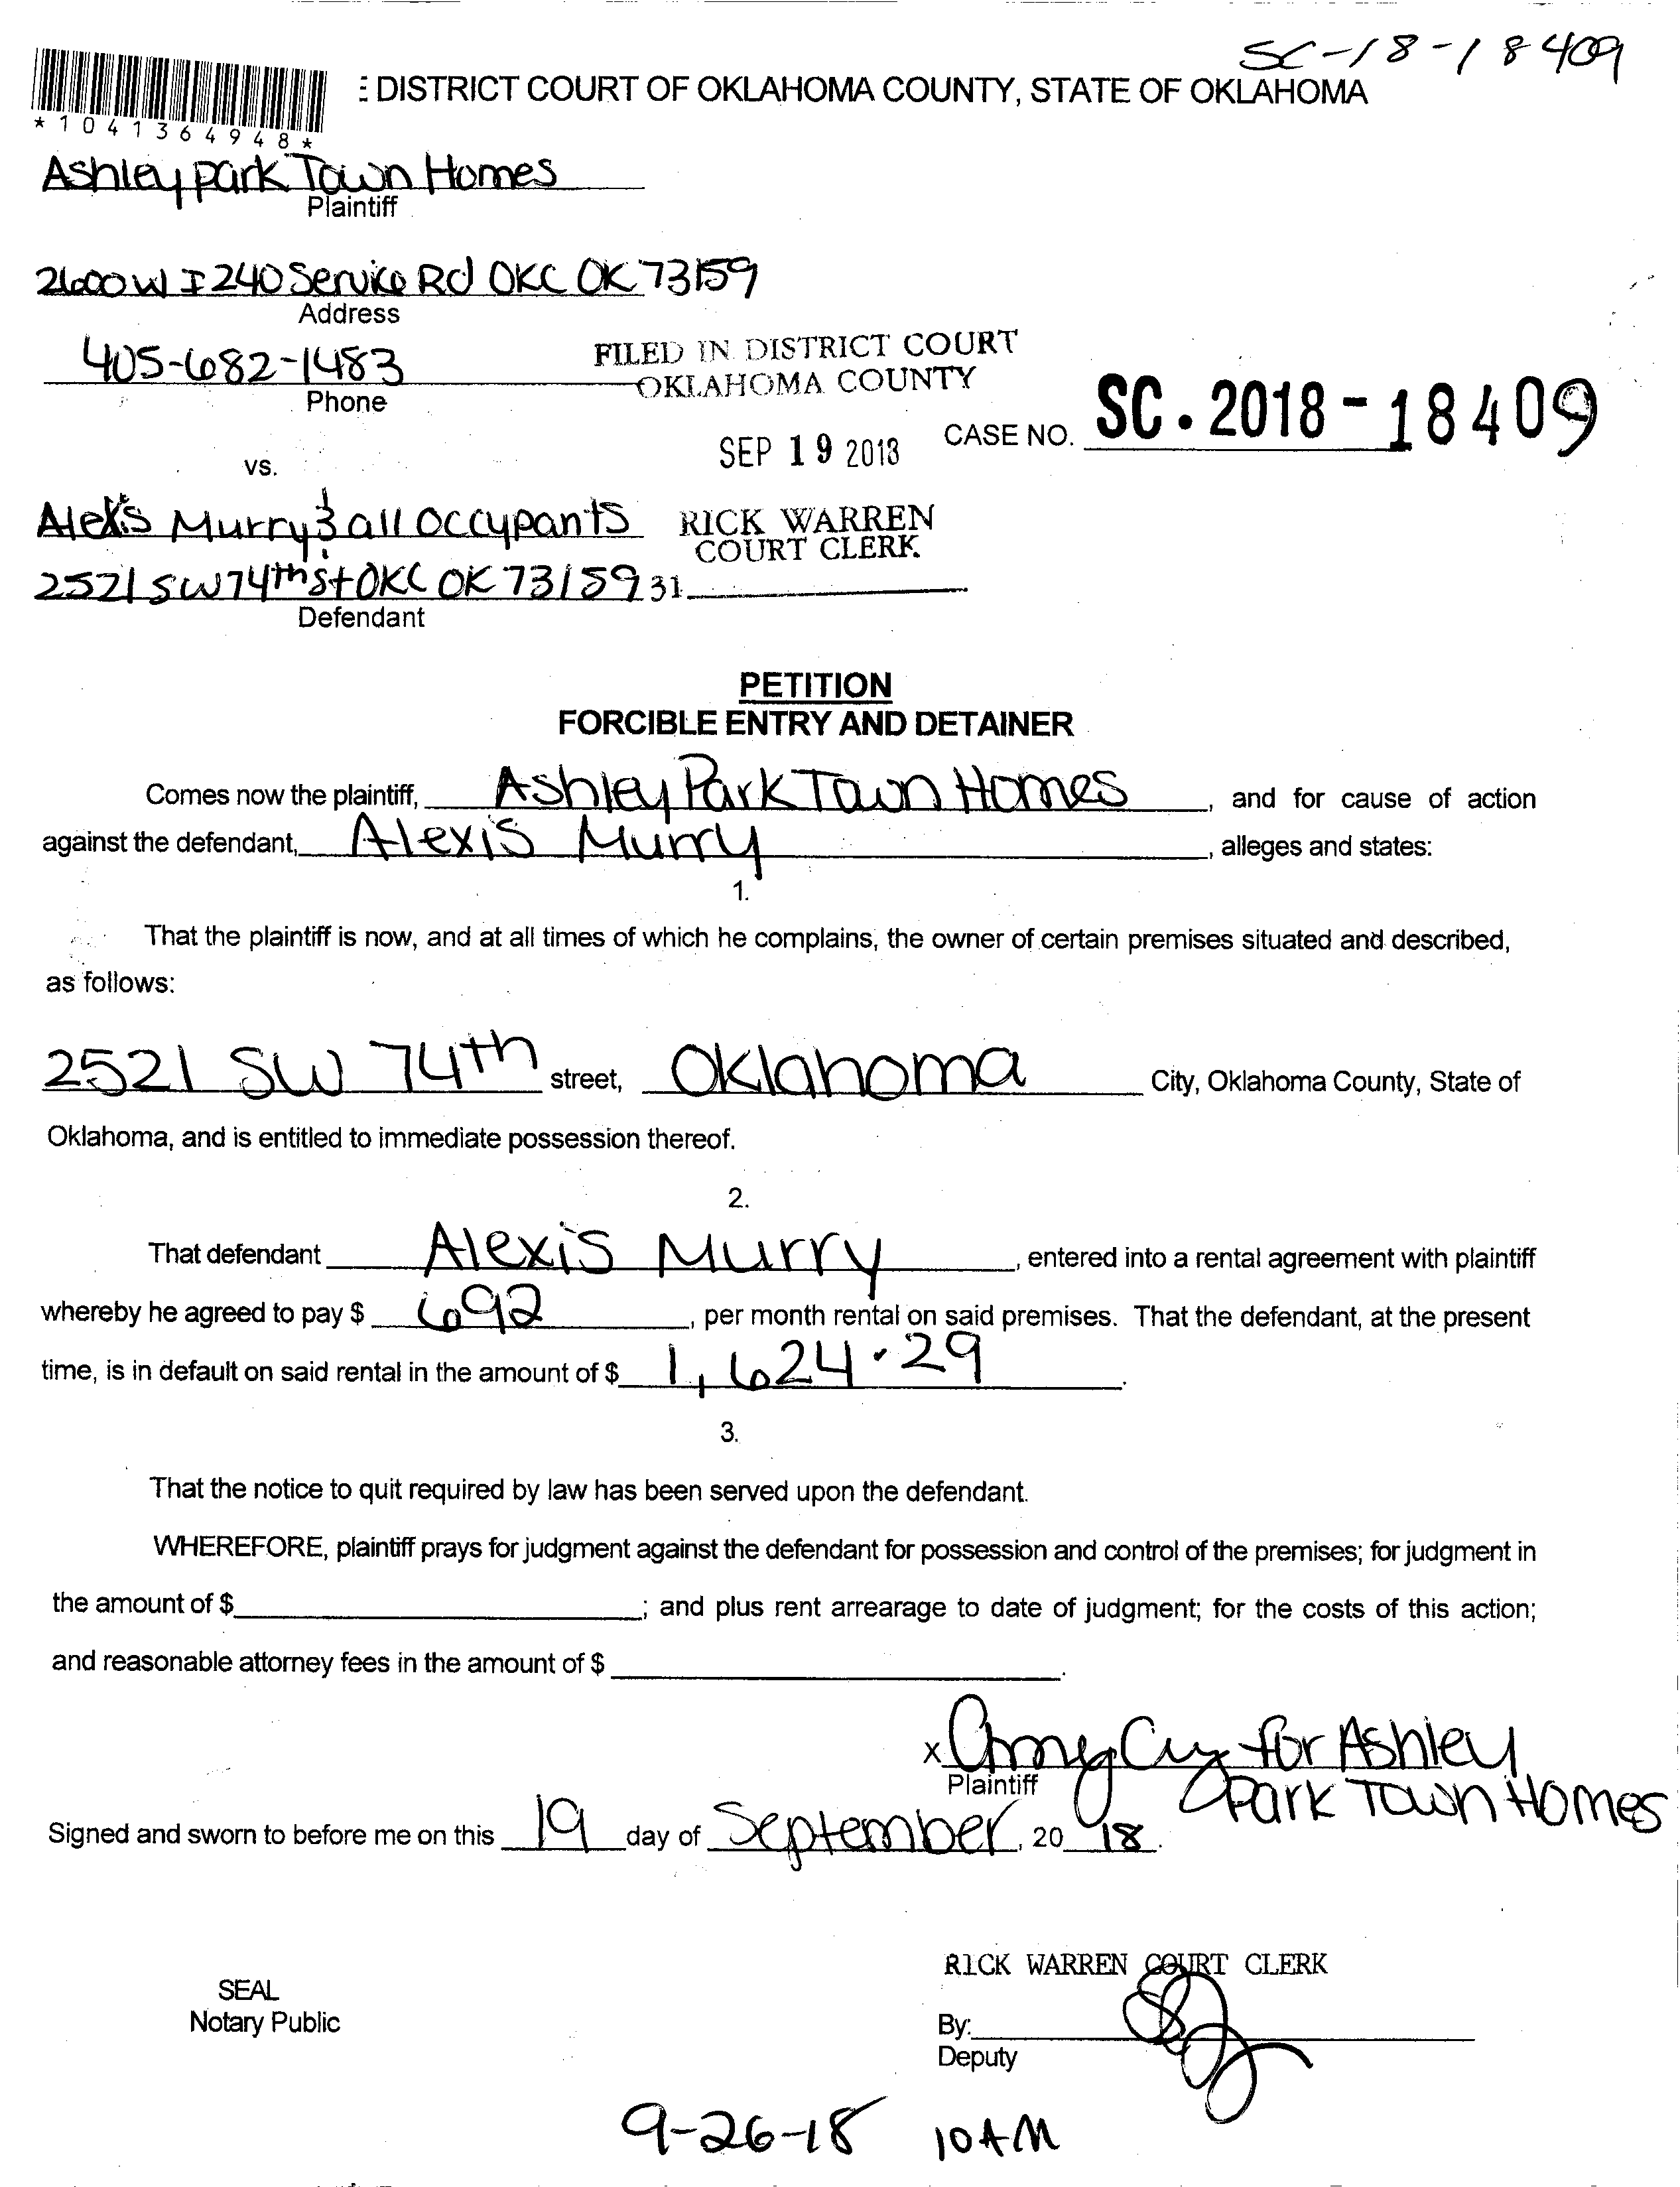 SC-18-18409
DISTRICT COURT OF OKLAHOMA COUNTY, STATE OF OKLAHOMA
*1041364948*
Ashley park Town Homes
Plaintiff
2600 W I 240 Service Rd OKC OK 73159
Address
405-682-1483
Phone
FILED IN DISTRICT COURT
OKLAHOMA COUNTY
SEP 19 2018
CASE NO. SC. 2018-18409
vs.
Alexis Murry & all occupants
RICK WARREN
COURT CLERK
2521 SW 74th St OKC OK 73159
31
Defendant
PETITION
FORCIBLE ENTRY AND DETAINER
Comes now the plaintiff, Ashley Park Town Homes, and for cause of action
against the defendant, Alexis Murry, alleges and states:
1.
That the plaintiff is now, and at all times of which he complains, the owner of certain premises situated and described,
as follows:
2521 SW 74th street, Oklahoma City, Oklahoma County, State of
Oklahoma, and is entitled to immediate possession thereof.
2.
That defendant Alexis Murry, entered into a rental agreement with plaintiff
whereby he agreed to pay $ 692, per month rental on said premises. That the defendant, at the present
time, is in default on said rental in the amount of $ 1,624.29.
3.
That the notice to quit required by law has been served upon the defendant.
WHEREFORE, plaintiff prays for judgment against the defendant for possession and control of the premises; for judgment in
the amount of $; and plus rent arrearage to date of judgment; for the costs of this action;
and reasonable attorney fees in the amount of $.
x Amy for Ashley
Plaintiff
Park Town Homes
Signed and sworn to before me on this 19 day of September, 2018.
RICK WARREN COURT CLERK
SEAL
Notary Public
By:
Deputy
9-26-18 10 AM